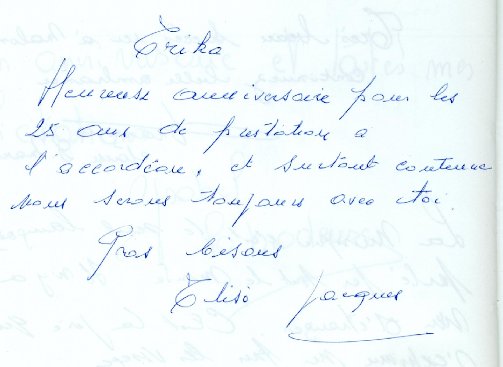 Erika
Heureuse anniversaire pour les
25 ans de prestation a
l'accordéon, et surtout continue
nous serons toujours avec toi.
Gros bisous
Elise Jacques